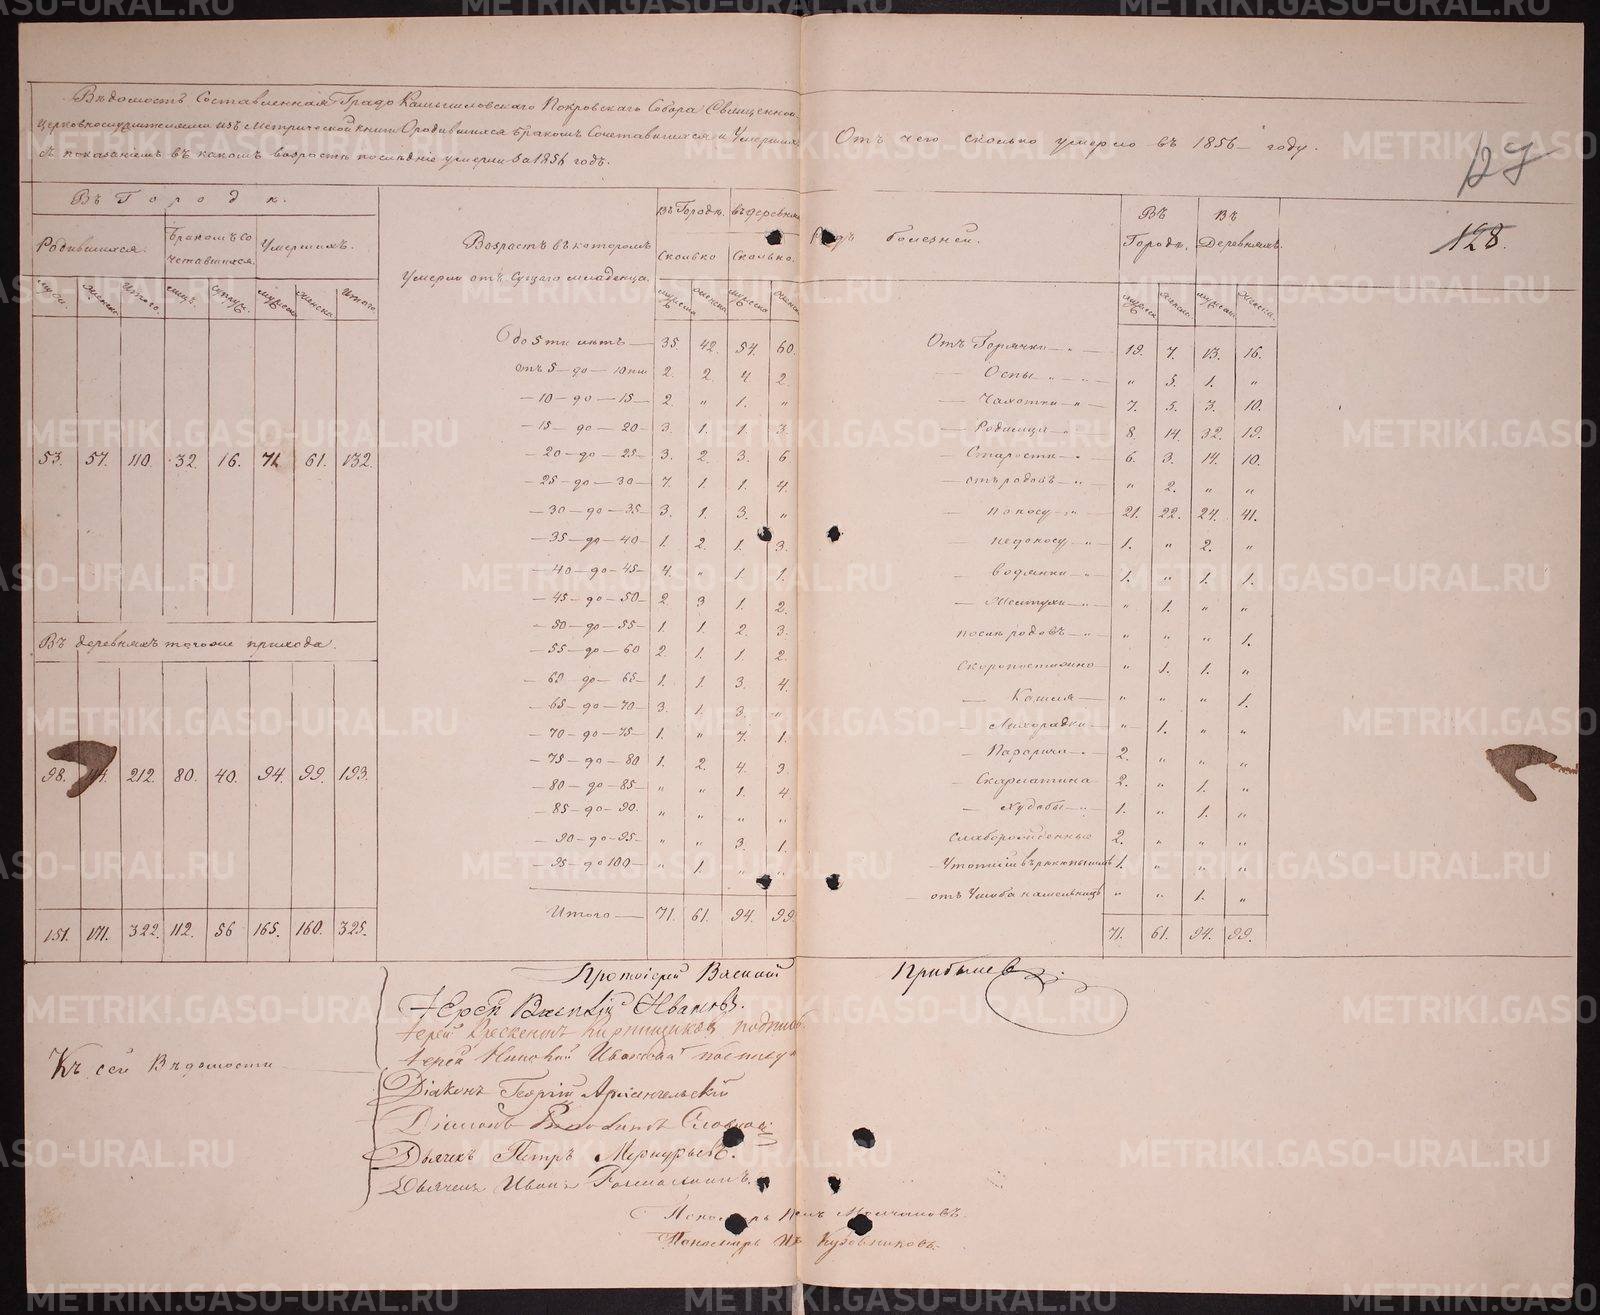 Вѣдомость Составленная Градо Камышловскаго Покровскаго Собора Священно
церковнослужителями изъ Метрической книги О родившихся Бракомъ Сочетавшихся и Умершихъ
съ показаніемъ въ какомъ возрастѣ послѣдніе умерли за 1856 годъ.
Отъ чего сколько умерло въ 1856 году.
127
128.
Въ Городѣ.
Родившихся. Бракомъ Сочетавшихся. Умершихъ.
мужс. женска. Итого. лицъ. супруж. мужска. женска. Итого.
53. 57. 110. 32. 16. 71. 61. 132.
Въ деревняхъ тогоже прихода.
98. 114. 212. 80. 40. 94. 99. 193.
151. 171. 322. 112. 56 165. 160. 325.
Возрастъ въ которомъ
Умерли отъ Сущаго младенца.
въ Городѣ. въ деревняхъ
Сколько Сколько.
до 5ти лѣтъ — 35. 42. 54. 60.
отъ 5 — до — 10ти 2. 2. 4. 2.
— 10 — до — 15 — 2. „ 1. „
— 15 — до — 20 — 3. 1. 1. 3.
— 20 — до — 25 — 3. 2. 3. 6
— 25 — до — 30 — 7. 1. 1. 4.
— 30 — до — 35 — 3. 1. 3. „
— 35 — до — 40 — 1. 2. 1. 3.
— 40 — до — 45 — 4. „ 1. 1.
— 45 — до — 50 — 2 3 1. 2.
— 50 — до — 55 — 1. 1. 2. 3.
— 55 — до — 60 2. 1. 1. 2.
— 60 — до — 65 — 1. 1. 3. 4.
— 65 — до — 70 — 3. 1. 3. „
— 70 — до — 75 — 1. „ 7. 1.
— 75 — до — 80 1. 2. 4. 3.
— 80 — до — 85 — „ „ 1. 4
— 85 — до — 90. „ „ „ „
— 90 — до — 95 — „ „ 3. 1.
— 95 — до 100 — „ 1. „ „
Итого — 71. 61. 94. 99
Родъ болезней.
Въ Городѣ. Въ Деревняхъ.
Отъ Горячки — 19. 7. 13. 16.
— Оспы „ 5. 1. „
— Чахотки 7. 5. 3. 10.
— Родимца 8. 14. 32. 19.
— Старости 6. 3. 14. 10.
— отъ родовъ „ 2. „ „
— поносу 21. 22. 24. 41.
— недоносу 1. „ 2. „
— водянки 1. „ 1. 1.
— Желтухи „ 1. „ „
послѣ родовъ „ „ „ 1.
Скоропостижно „ 1. 1. „
— Кашля „ „ „ 1.
— Лихорадки „ 1. „ „
— Параличи 2. „ „ „
— Скарлатина 2. „ 1. „
— Худобы 1. „ 1. „
слаборожденные 2. „ „ „
1. „ „ „
отъ Ушиба „ „ 1. „
71. 61. 94. 99.
Къ сей Вѣдомости
Протоіерей Василий Прибылев
Іерей Василій Ивановъ.
Іерей
Іерей Николай
Діаконъ Георгій Архангельскій
Діаконъ
Дьячекъ Петръ Меркурьевъ.
Дьячекъ Иванъ
Пономарь Молчановъ.
Пономарь Кузовниковъ.
METRIKI.GASO-URAL.RU